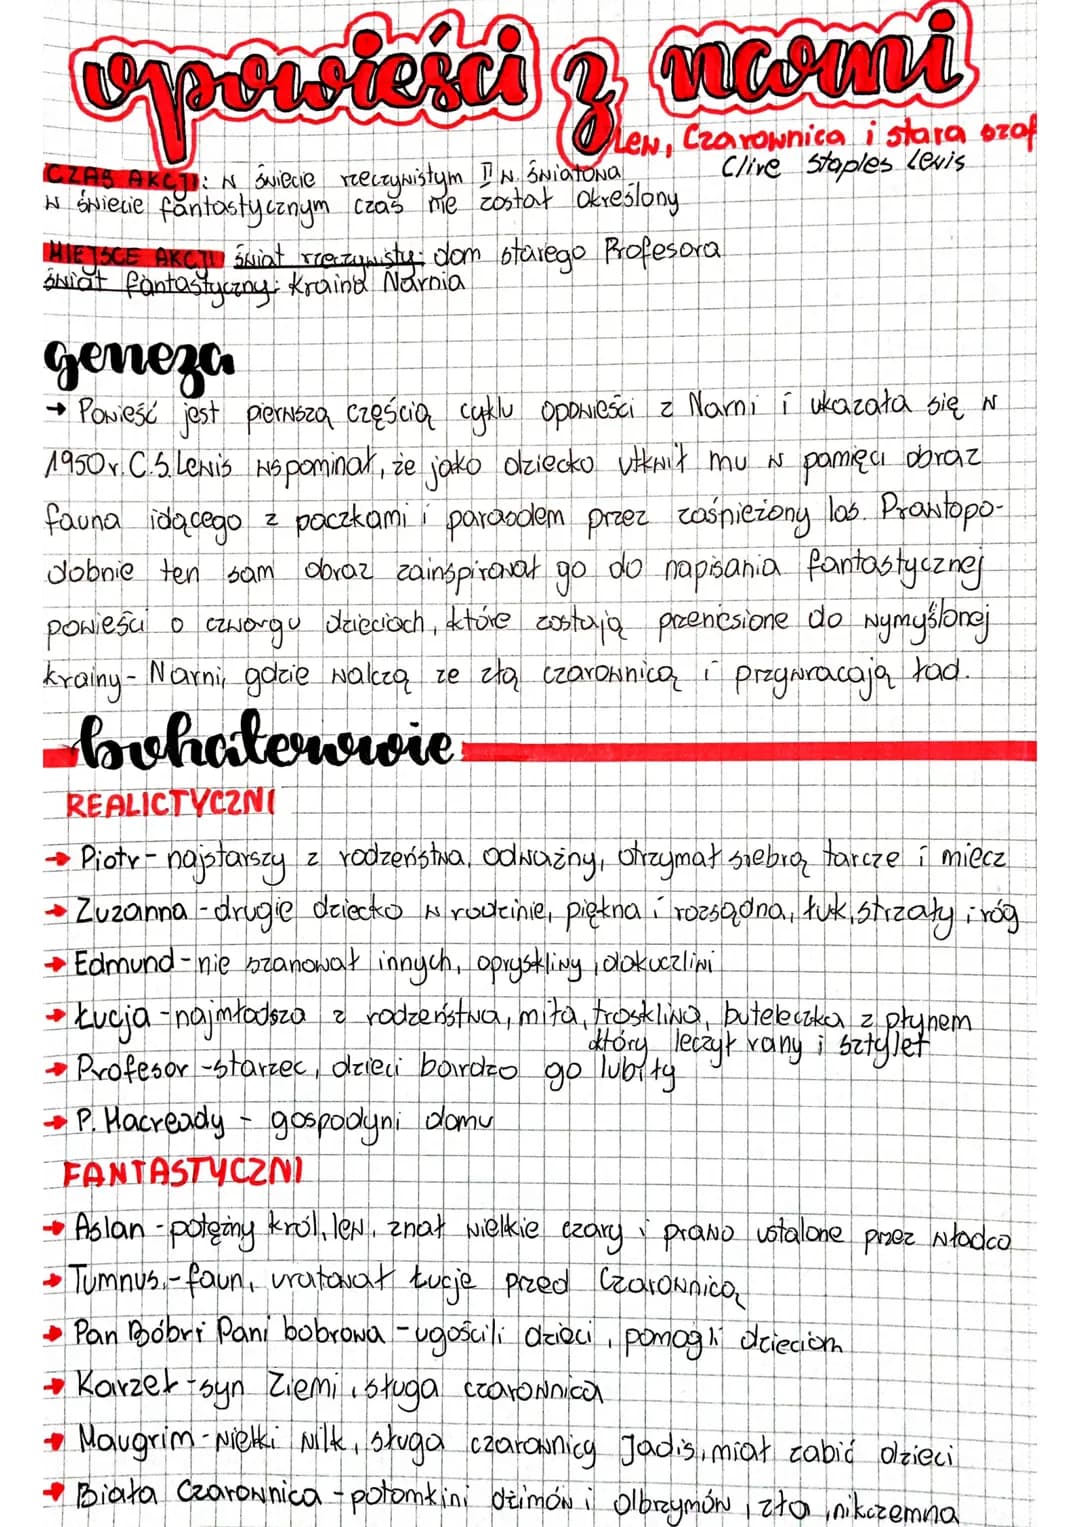 opowieści z narni
Lew, Czarownica i stara szaf
Clive Staples Lewis
CZAS AKCJI: w świecie rzeczywistym II w. światowa
w świecie fantastycznym czas nie został określony
MIEJSCE AKCJI świat rzeczywisty: dom starego Profesora
świat fantastyczny: kraina Narnia
geneza
→ Powieść jest pierwszą częścią cyklu opowieści z Narni i ukazała się w
1950r. C.S. Lewis wspominał, że jako dziecko utkwił mu w pamięci obraz
fauna idącego z paczkami i parasolem przez zaśnieżony las. Prawdopo-
dobnie ten sam obraz zainspirował go do napisania fantastycznej
powieści o czworgu dzieciach, które zostają przeniesione do wymyślonej
krainy- Narni, gdzie walczą ze złą czarownicą i przywracają ład.
bohaterowie
REALICTYCZNI
→ Piotr - najstarszy z rodzeństwa, odważny, otrzymał srebrą tarcze i miecz
→ Zuzanna - drugie dziecko w rodzinie, piękna i rozsądna, łuk, strzały i róg
→ Edmund - nie szanował innych, opryskliwy, dokuczliwi
→ Łucja - najmłodsza z rodzeństwa, miła, troskliwa, buteleczka z płynem
który leczył rany i sztylet
→ Profesor - starzec, dzieci bardzo go lubiły
→ P. Macready - gospodyni domu
FANTASTYCZNI
→ Aslan - potężny król, lew, znał wielkie czary i prawo ustalone przez władco
→ Tumnus - faun, uratował Łucje przed Czarownicą
→ Pan Bóbr i Pani bobrowa - ugościli dzieci, pomogli dzieciom
→ Karzeł - syn Ziemi, sługa czarownica
→ Maugrim - wielki wilk, sługa czarownicy Jadis, miał zabić dzieci
→ Biała Czarownica - potomkini dżinów i Olbrzymów, zła, nikczemna